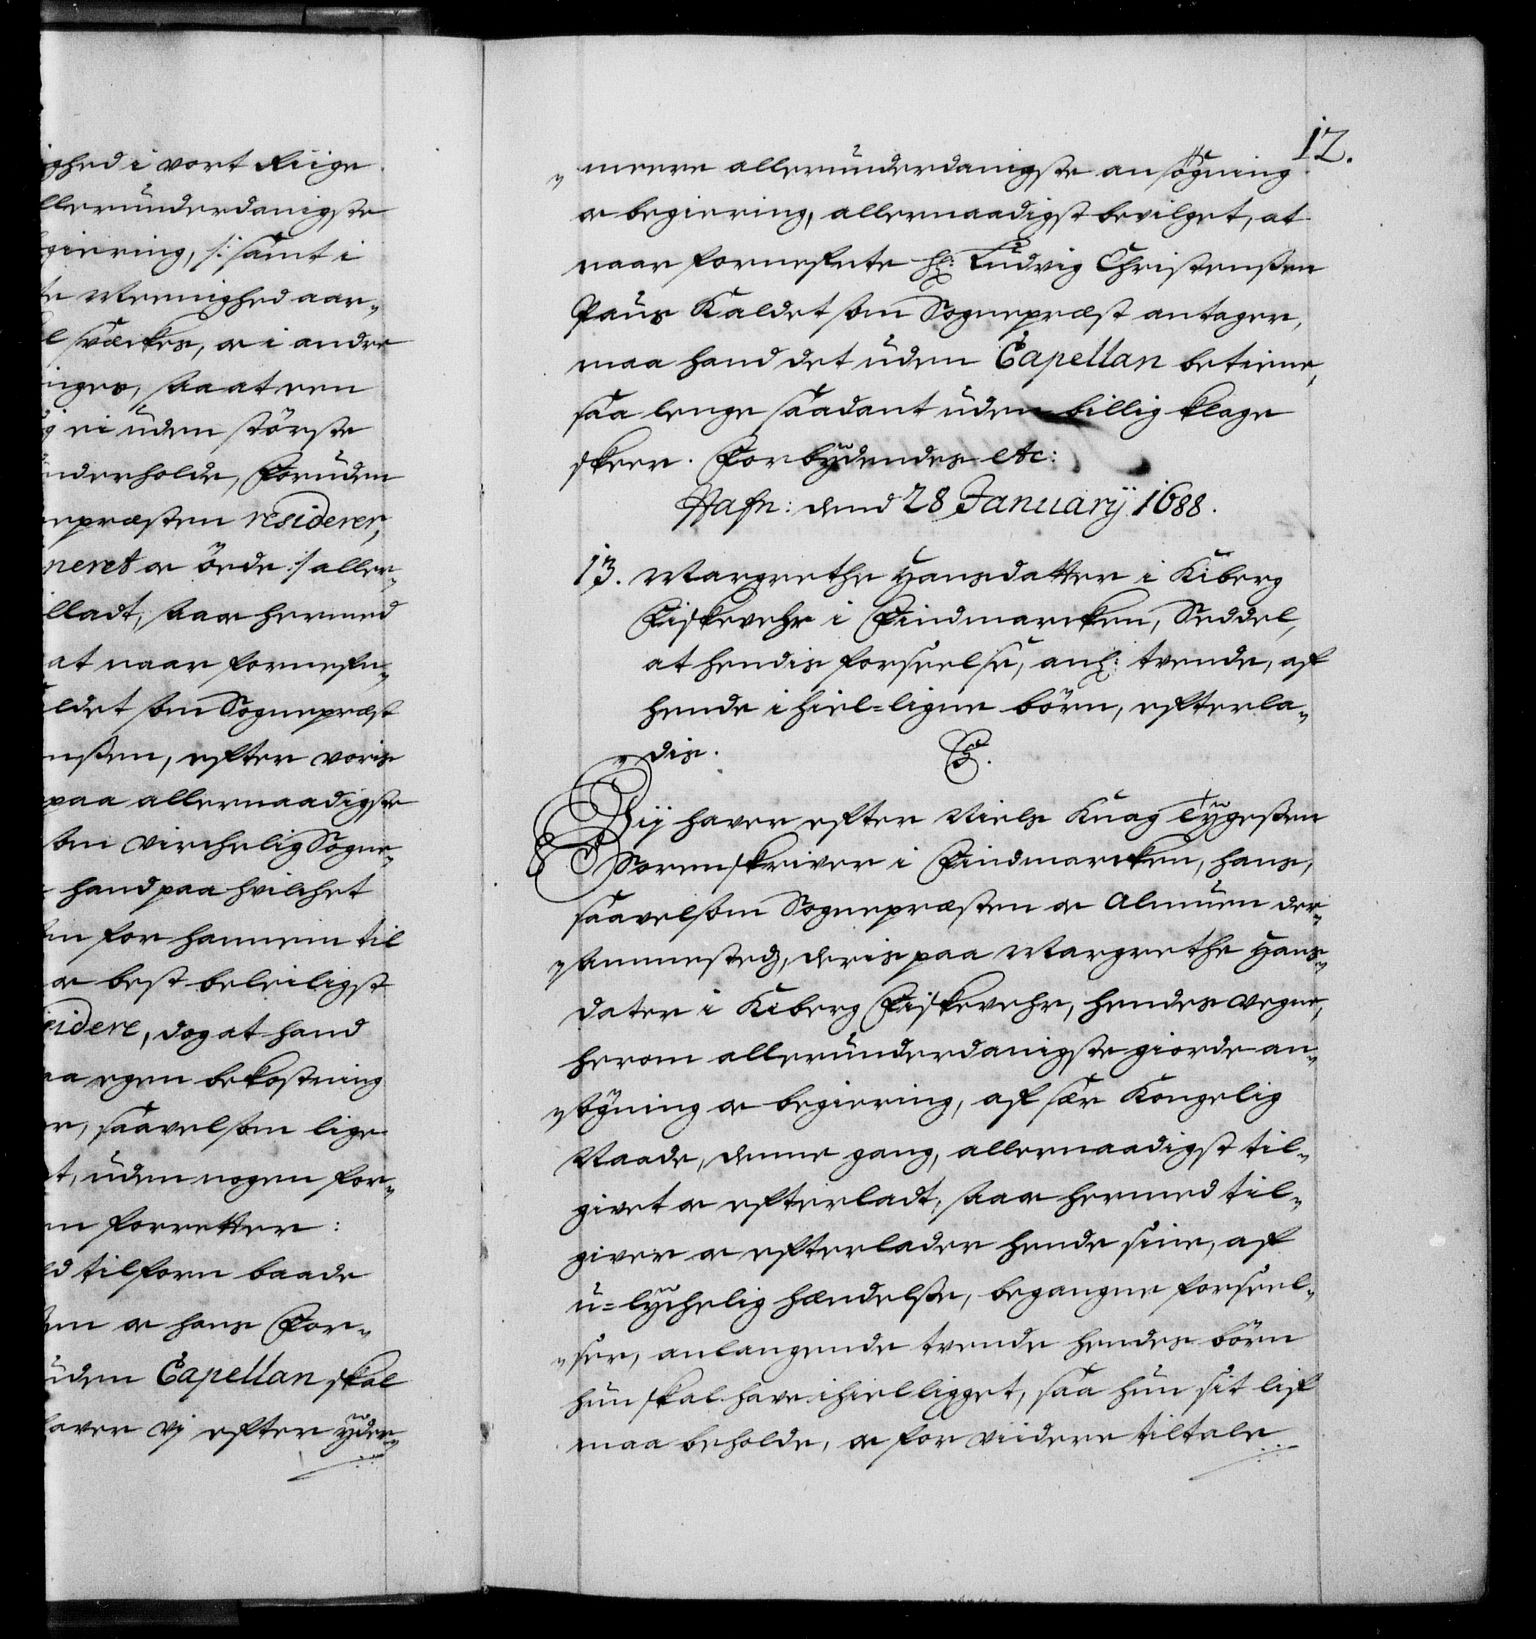 ighed i vort Riige
llerunderdanigste
giering, /: samt i
te Menighed aar¬
l svækes, oc i andre
inges, saa at een
g ei uden störste
nderholde, foruden
nepræsten residerer,
neret oc öede :/ aller¬
lladt, saa oc hermed
at naar fornefn¬
ldet som Sognepræst
nßen, efter voris
paa allernaadigste
som virchelig Sogne¬
hand paa hvilchet
m for hannem til
oc best beleiligst
sidere, dog at hand
aa egen bekostning
er, saavelsom lige
t, uden nogen for¬
en forretter:
ed tilforn baade
em oc hans For¬
uden Capellan skal
haver vj efter ÿder¬
12.
mere allerunderdanigste ansögning
oc begiering, allernaadigst bevilget, at
naar fornefnte Hr: Ludvig Christenßen
Paus Kaldet som Sognepræst antager,
maa hand det uden Capellan betiene,
saa lenge saadant uden billig klage
skeer. Forbÿdendes etc:
Hafn: dend 28 Januarij 1688.
13. Margrethe Hansdatter i Kiberg
Fiskevehr i Findmarcken, Seddel,
at hendis forseelse, anl: tvende, af
hende ihiel=ligne börn, efterla¬
dis.
C5.
Vij haver efter Niels Knag Tÿgeßen
Sorenskriver i Findmarcken, hans,
saavelsom Sognepræsten oc Almuen der¬
sammesteds, deris paa Margrethe Hans¬
dater i Kiberg Fiskevehr, hendes vegne,
herom allerunderdanigste giorde an¬
sögning oc begiering, af sær Kongelig
Naade, denne gang, allernaadigst til¬
givet oc efterladt, saa oc hermed til¬
giver oc efterlader hende sine, af
u=lÿchelig hændelße, begangne forseel¬
ser, anlangende tvende hendes börn
hun skal have ihielligget, saa hun sit lif
maa beholde, oc for viidere tiltale